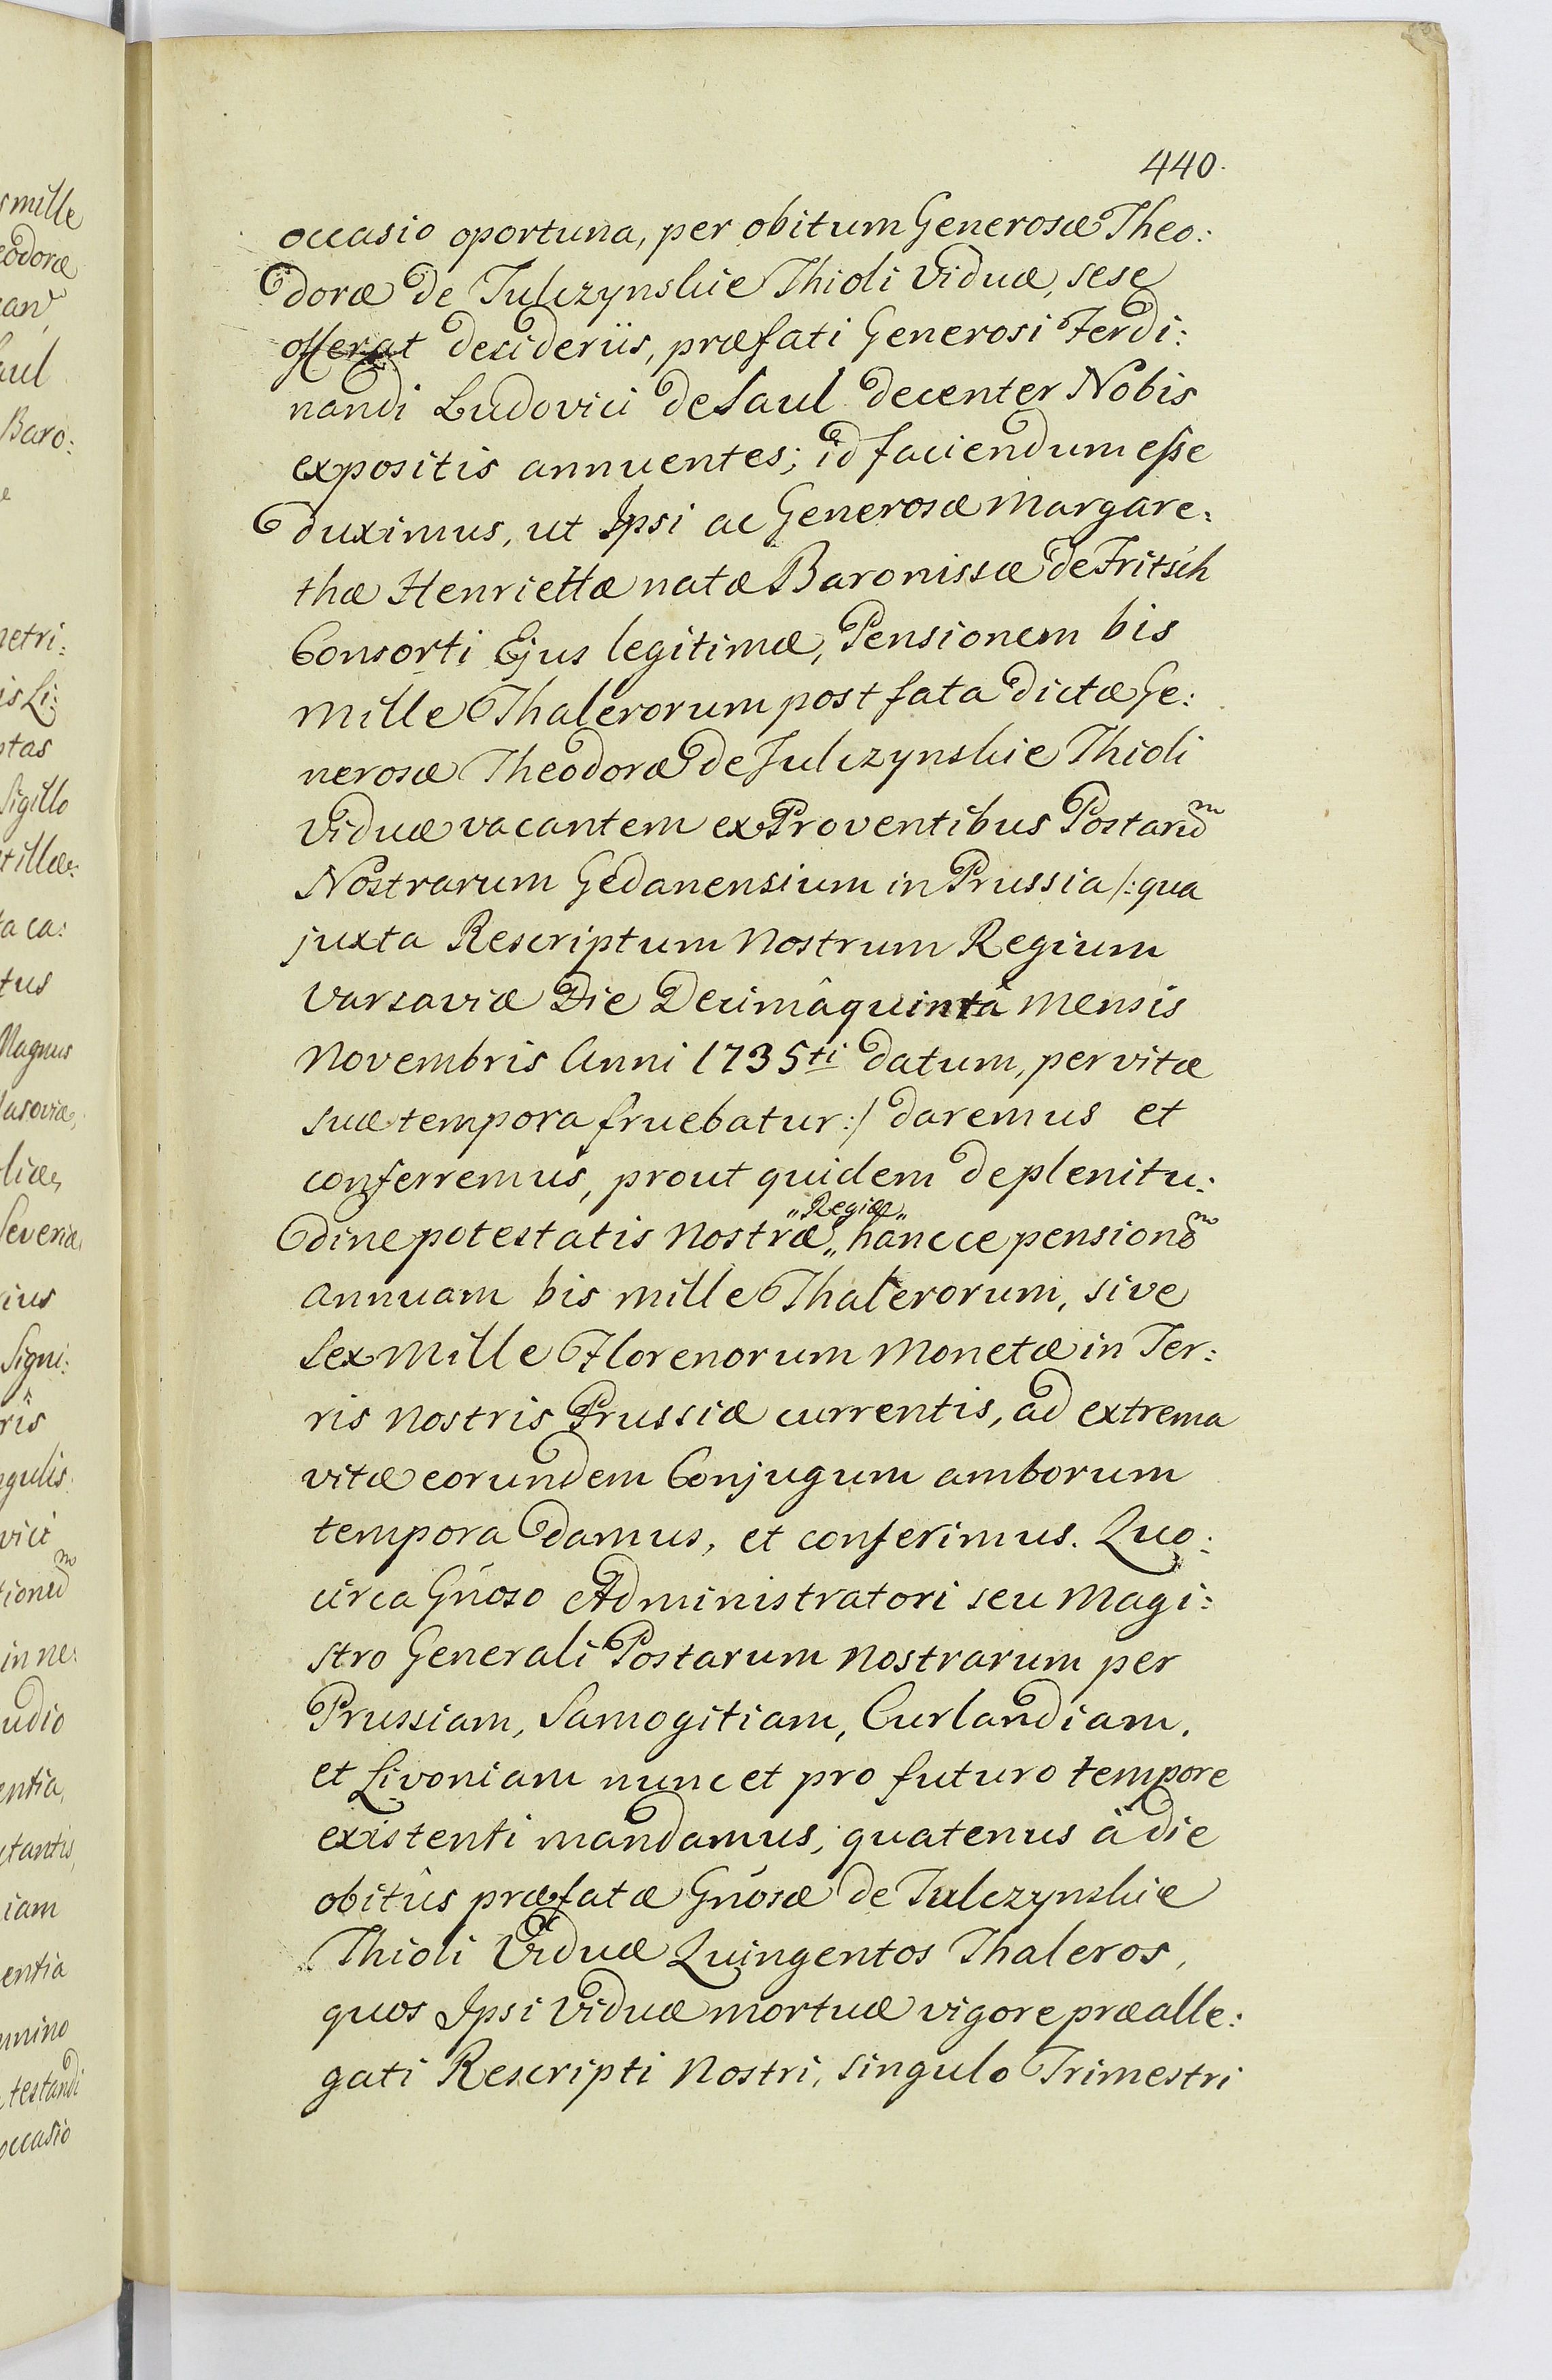 440.
occasio oportuna, per obitum Generosæ Theo:
doræ de Tulczynskie Thioli Viduæ, sese
offerat desideriis, præfati Generosi Ferdi:
nandi Ludovici de Saul decenter Nobis
expositis annuentes; id faciendum esse
duximus, ut Ipsi ac Generosæ Margare:
thæ Henriettæ natæ Baronissæ de Fritsch
Consorti Ejus legitimæ, Pensionem bis
mille Thalerorum post fata dictæ Ge:
nerosæ Theodoræ de Julczynskie Thioli
Viduæ vacantem ex Proventibus Postarũ
Nostrarum Gedanensium in Prussia /: qua
juxta Rescriptum Nostrum Regium
Varsaviæ Die Decimâquintâ Mensis
Novembris Anni 1735ti datum, per vitæ
suæ tempora fruebatur :/ daremus et
conferremus, prout quidem de plenitu:
dine potestatis Nostræ „Regiæ„ hancce pensionẽ
annuam bis mille Thalerorum, sive
Sex Mille Florenorum Monetæ in Ter:
ris Nostris Prussiæ currentis, ad extrema
vitæ eorundem Conjugum amborum
tempora damus, et conferimus. Quo:
circa Gn̄oso Administratori seu Magi:
stro Generali Postarum Nostrarum per
Prussiam, Samogitiam, Curlandiam,
et Livoniam nunc et pro futuro tempore
existenti mandamus, quatenus à die
obitûs præfatæ Gn̄osæ de Tulczynskie
Thioli Viduæ Quingentos Thaleros,
quos Ipsi Viduæ mortuæ vigore præalle:
gati Rescripti Nostri, singulo Trimestri